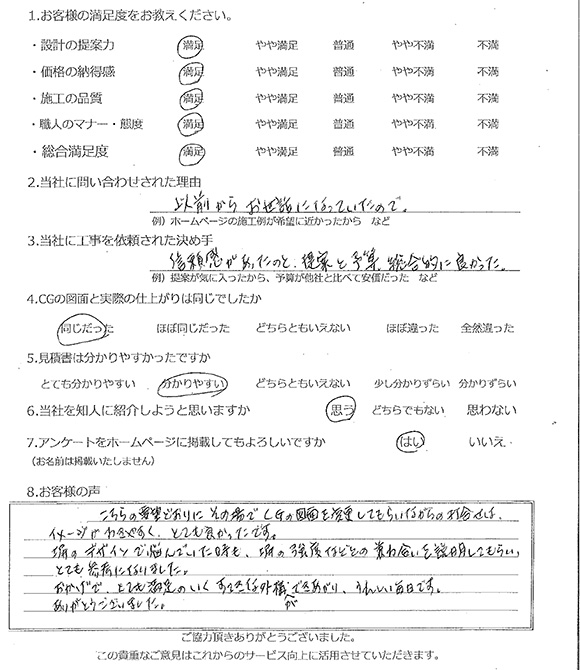 1.お客様の満足度をお教えください。
・設計の提案力 満足 やや満足 普通 やや不満 不満
・価格の納得感 満足 やや満足 普通 やや不満 不満
・施工の品質 満足 やや満足 普通 やや不満 不満
・職人のマナー・態度 満足 やや満足 普通 やや不満 不満
・総合満足度 満足 やや満足 普通 やや不満 不満
2.当社に問い合わせされた理由
以前から お世話になっていたので。
例）ホームページの施工例が希望に近かったから など
3.当社に工事を依頼された決め手
信頼感があったのと、提案と予算、総合的に良かった。
例）提案が気に入ったから、予算が他社と比べて安価だった など
4.CGの図面と実際の仕上がりは同じでしたか
同じだった ほぼ同じだった どちらともいえない ほぼ違った 全然違った
5.見積書は分かりやすかったですか
とても分かりやすい 分かりやすい どちらともいえない 少し分かりずらい 分かりずらい
6.当社を知人に紹介しようと思いますか 思う どちらでもない 思わない
7.アンケートをホームページに掲載してもよろしいですか はい いいえ
（お名前は掲載いたしません）
8.お客様の声
こちらの要望どおりに その場で CGの図面を変更してもらいながらの打合せは、
イメージが わきやすく、とても良かったです。
塀の デザインで悩んでいた時も、塀の 強度などとの 兼ね合いを説明してもらい、
とても参考になりました。
おかげで、とても満足のいく すてきな外構が できあがり、うれしい毎日です。
ありがとうございました。
ご協力頂きありがとうございました。
この貴重なご意見はこれからのサービス向上に活用させていただきます。